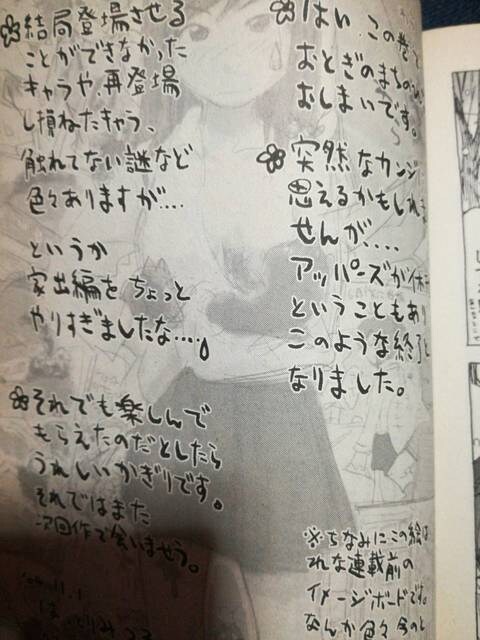 はい、この巻で
おとぎのまちの
おしまいです。
突然なカンジに
思えるかもしれま
せんが....
アッパーズが休
ということもあり
このような終了と
なりました。
結局登場させる
ことができなかった
キャラや、再登場
し損ねたキャラ、
触れてない謎など
色々ありますが....
というか
家出編をちょっと
やりすぎましたな....。
それでも楽しんで
もらえたのだとしたら
うれしいかぎりです。
それではまた
次回作で会いませう。
'04.11.1
※ちなみにこの絵は
れな連載前の
イメージボードです。
なんか色々今のと